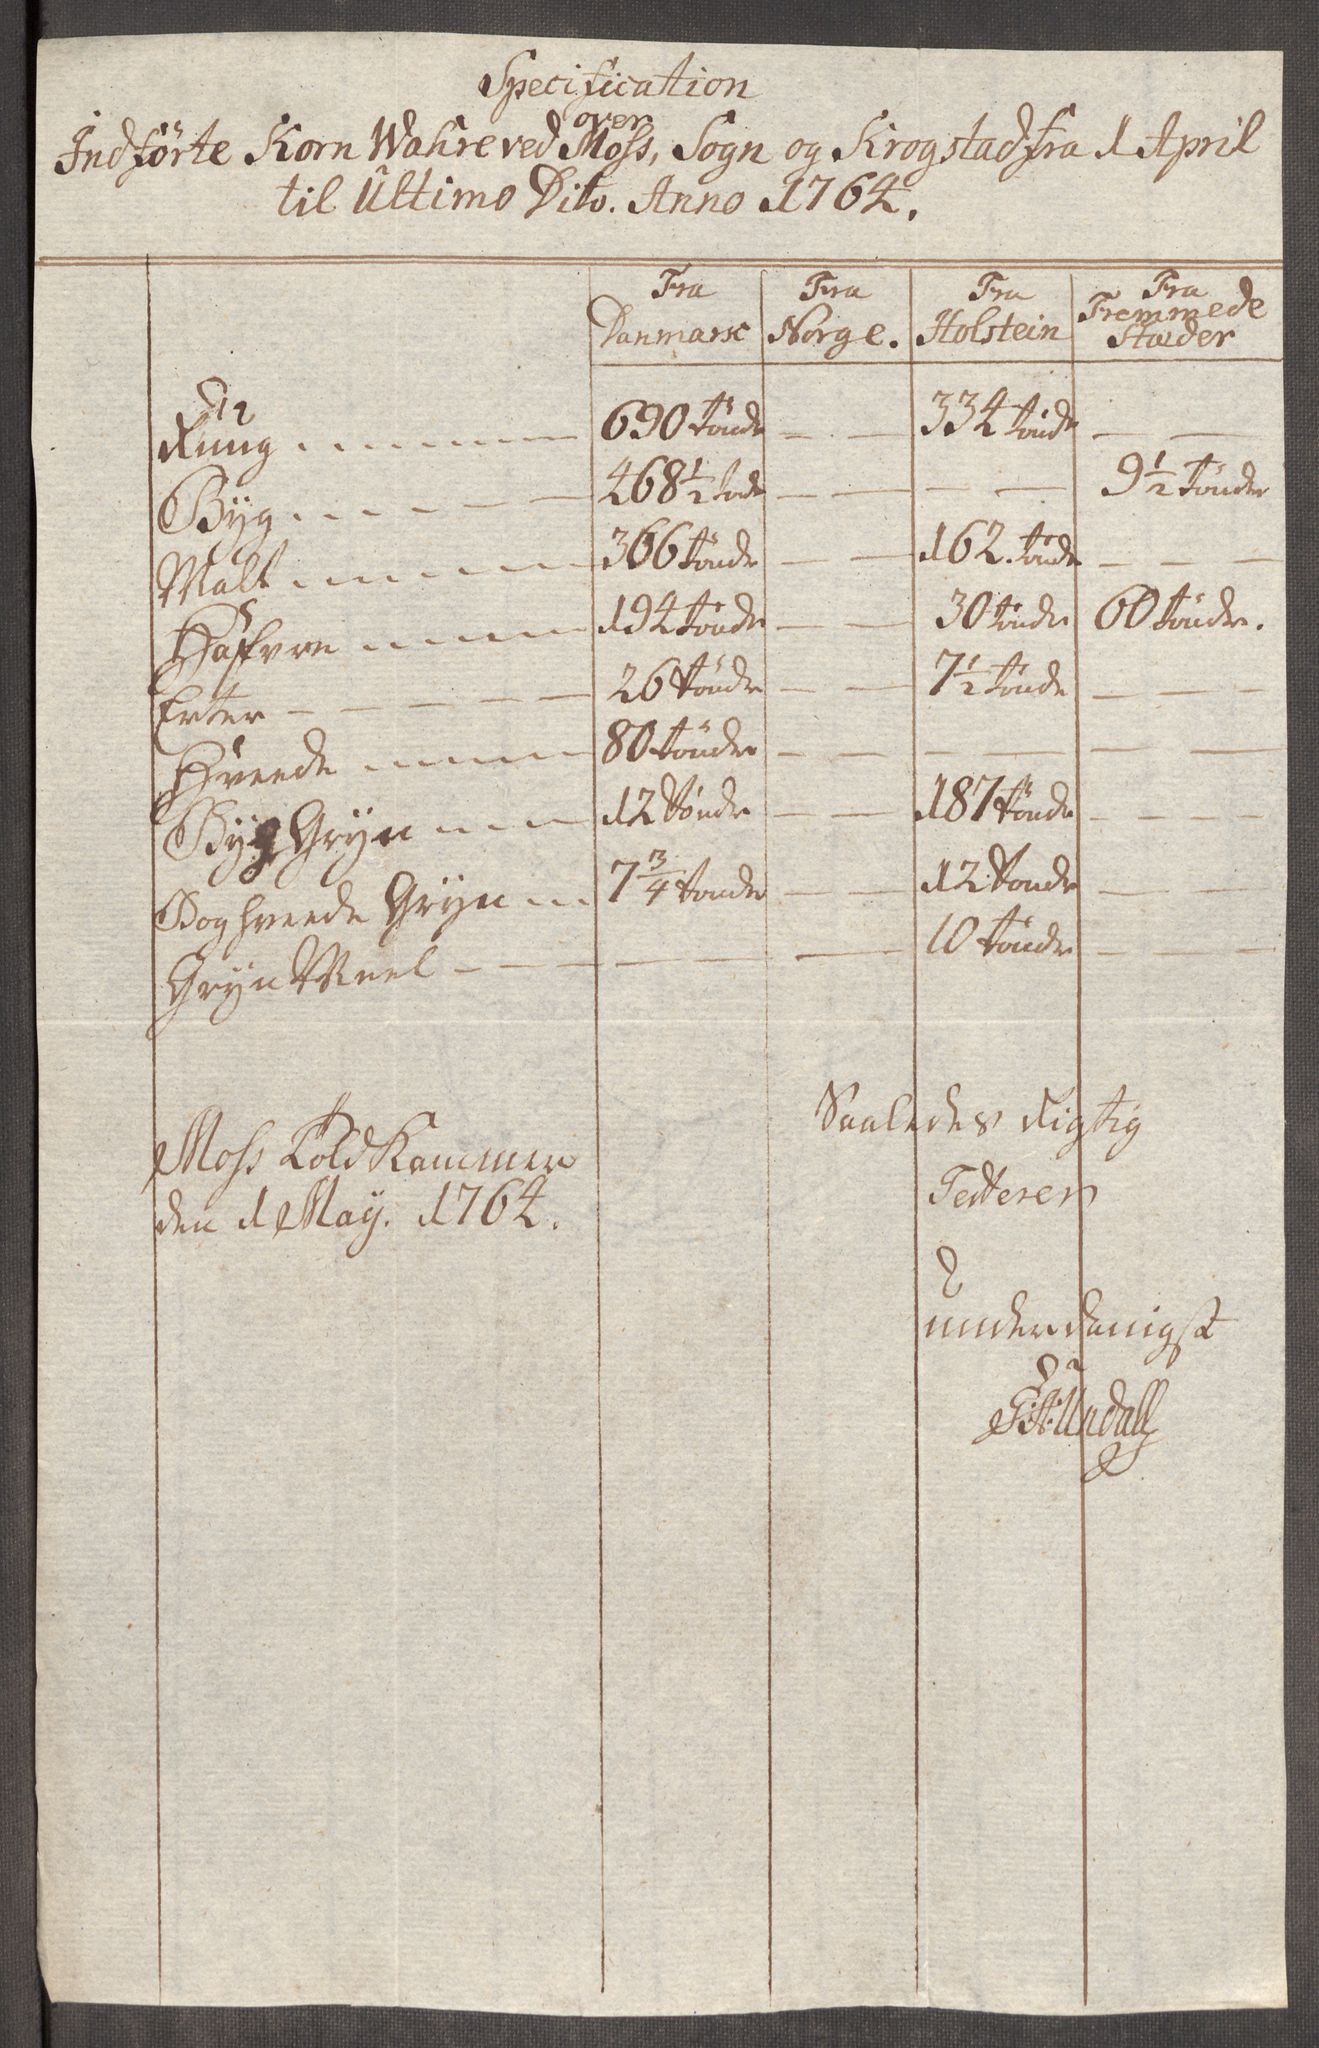 Specification
over
Indførte Korn Wahre ved Moss, Sogn og Krogstad fra 1 April
til Ultimo Dito. Anno 1764.
Fra Danmark Fra Norge. Fra Holstein Fra Fremmede Stæder
Ruug 690 tönder — 334 tönder —
Byg 468 1/2 töde — — 9 1/2 Tönder
Malt 366 tönder — 162. tönder —
Haffvre 194 tönder — 30 tönder 60 tönder.
Erter 26 tönder — 7 1/2 tönde —
Hveede 80 tönder — — —
Byg Gryn 12 tönder — 187 tönder —
Boghveede Gryn 7 3/4 tonder — 12 tonder —
Gryn Meel — — 10 tönder —
Saaledes Rigtig
Moss Told Kammer
Testerer
den 1 May. 1764.
underdanigst
Undall